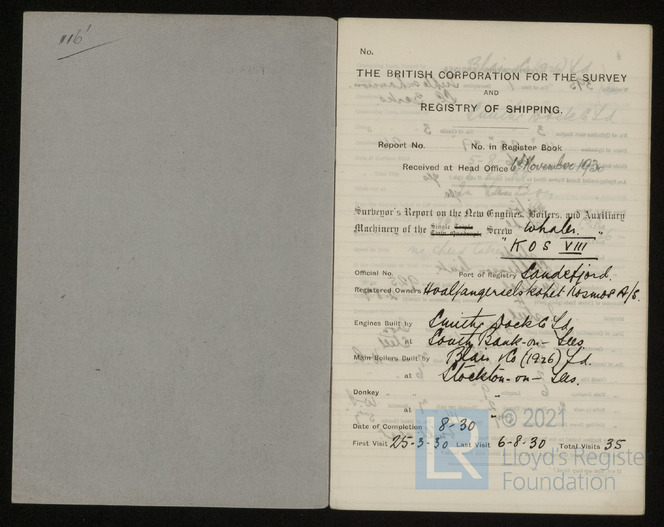 116
No.
THE BRITISH CORPORATION FOR THE SURVEY
AND
REGISTRY OF SHIPPING.
Report No. No. in Register Book
Received at Head Office 6th November 1930
Surveyor's Report on the New Engines, Boilers, and Auxiliary
Machinery of the Single Triple Twin Quadruple Screw Whaler
"KOS VIII"
Official No. Port of Registry Sandefjord.
Registered Owners Hvalfangerselskapet Kosmos A/S.
Engines Built by Smiths Dock Co Ld
at South Bank-on-Tees
Main Boilers Built by Blair & Co (1926) Ld.
at Stockton-on-Tees.
Donkey "
at "
Date of Completion 8-30
First Visit 25-3-30 Last Visit 6-8-30 Total Visits 35
LR © 2021
Lloyd's Register
Foundation